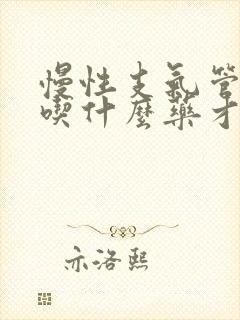 慢性支氣管
喫什麼藥才
亦洛熙